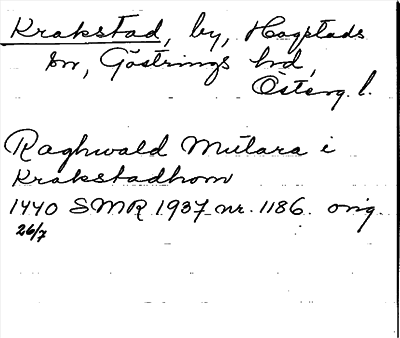 Krakstad, by, Hogstads
sn, Göstrings hd,
Österg. l.
Raghwald Mutara i
Krakstadhom
1440 SMR 1937 nr. 1186. orig.
26/7